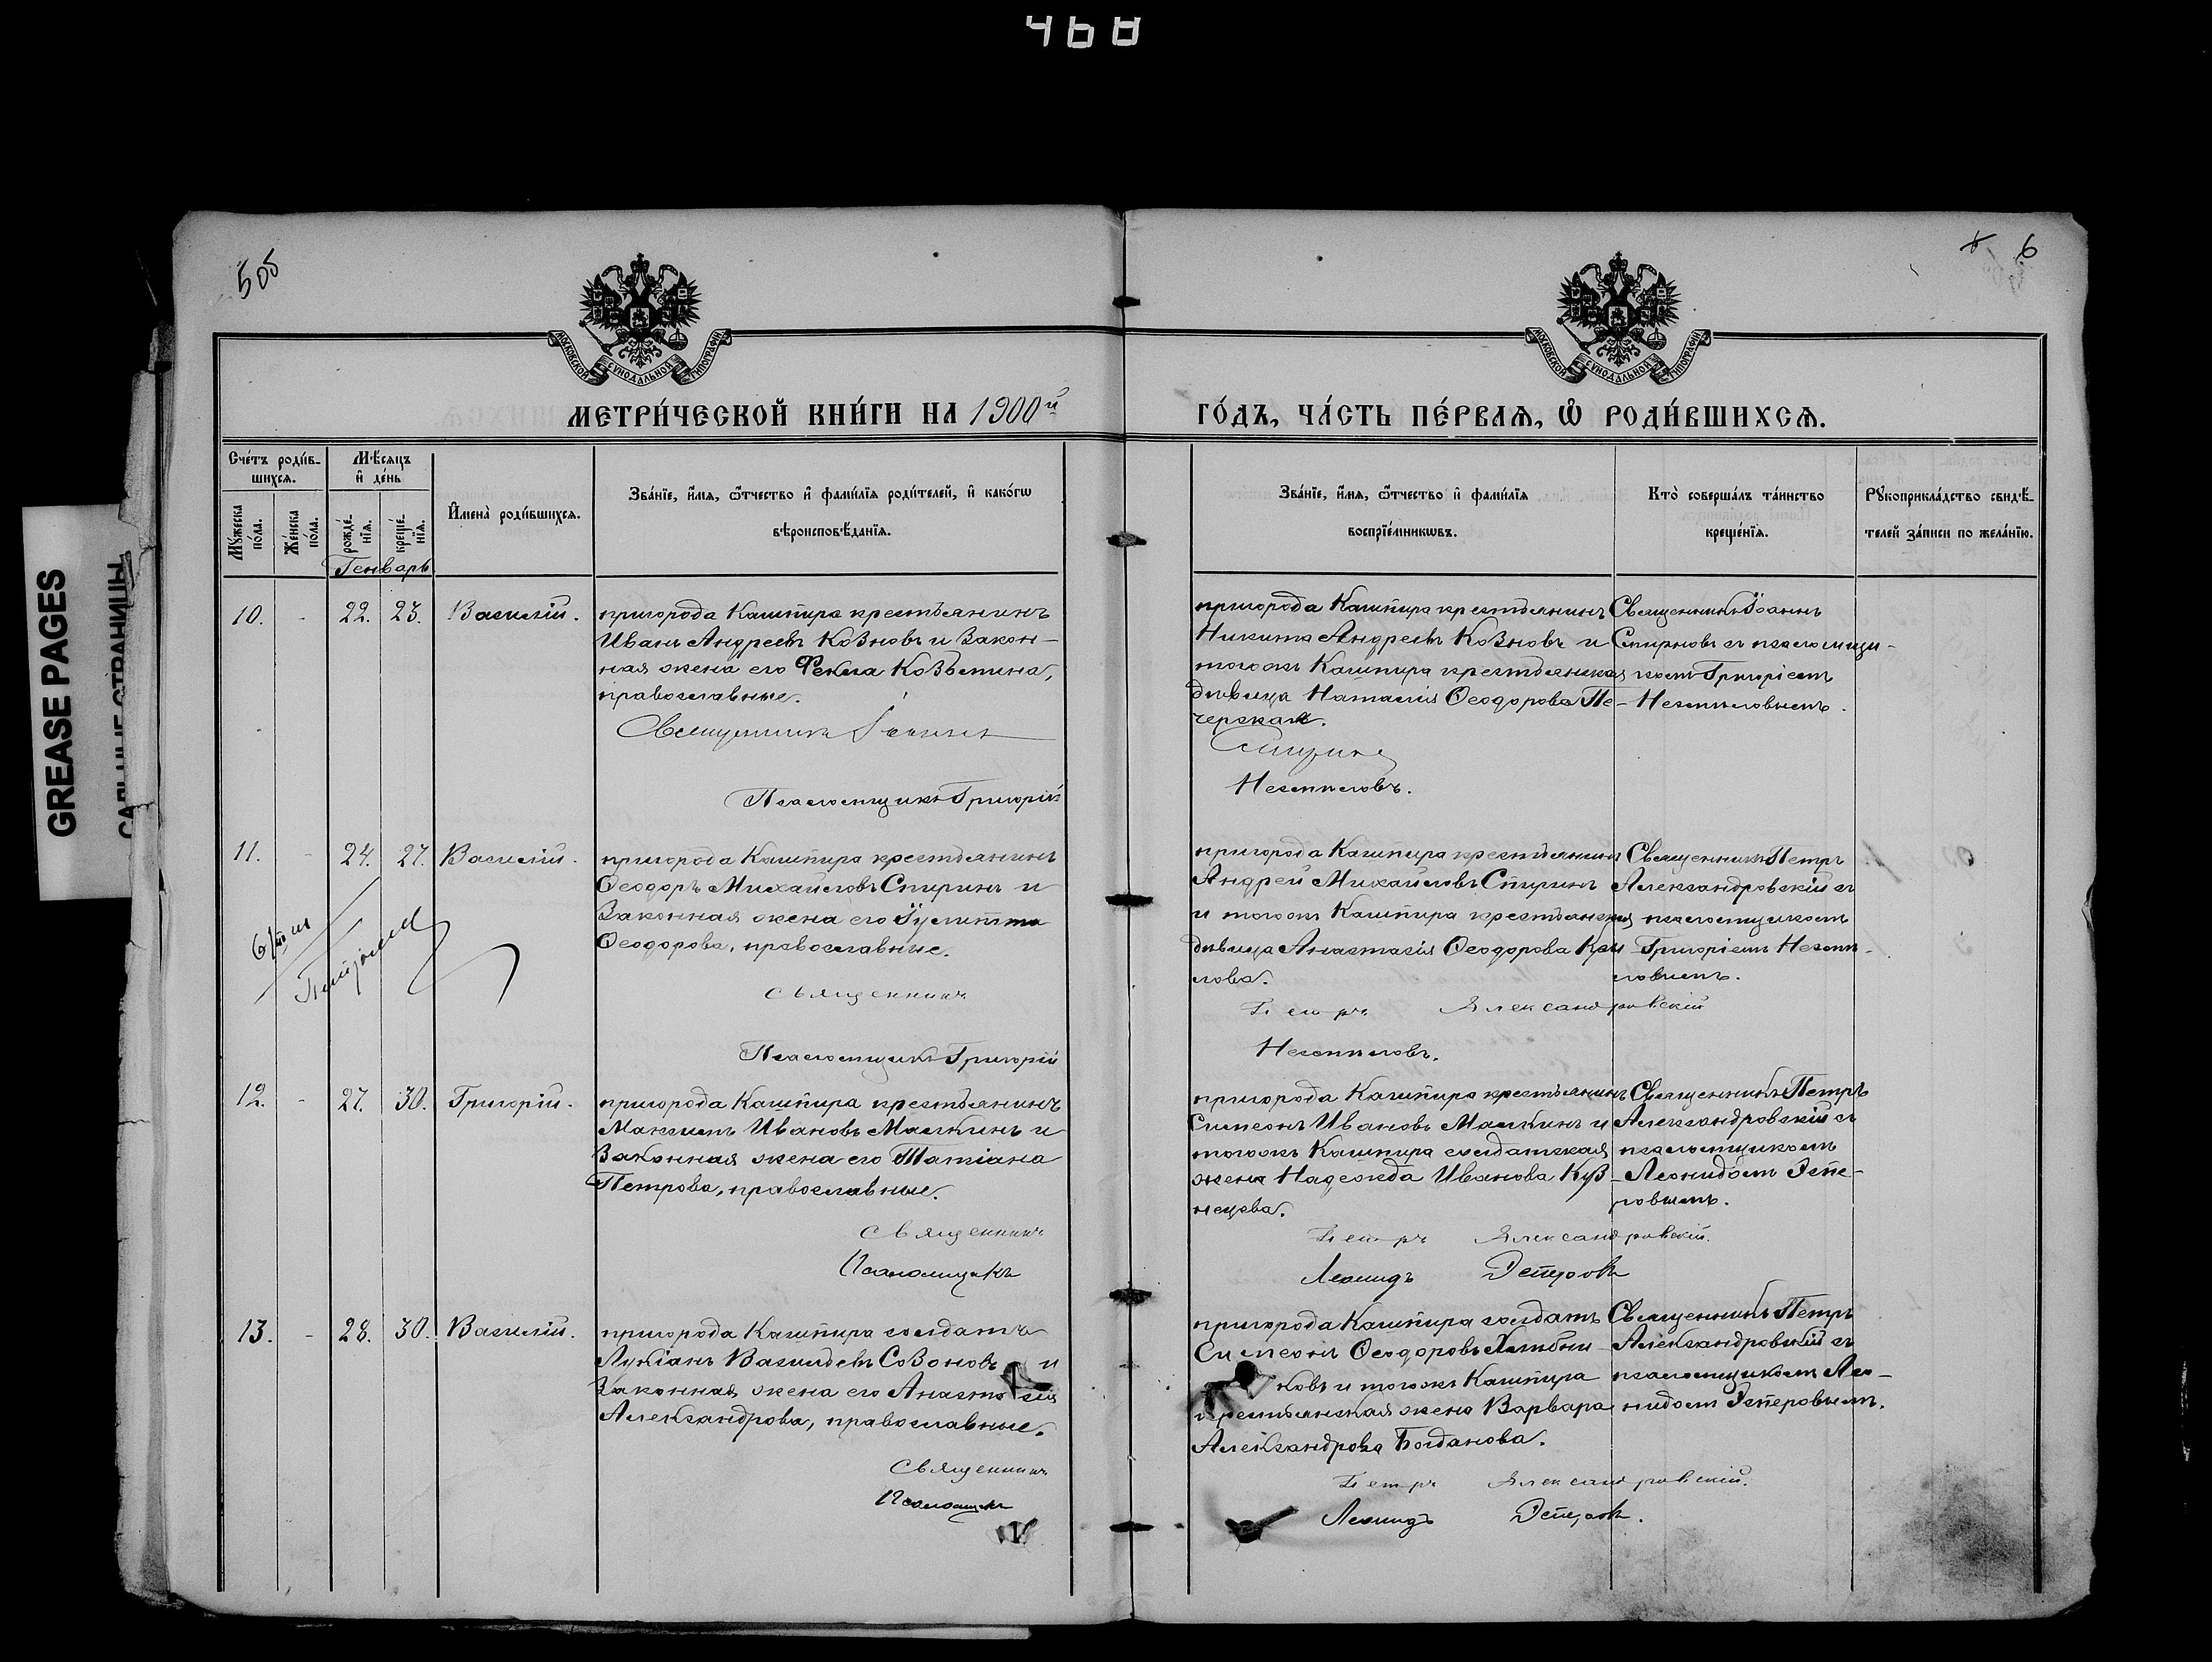 468
505
6
МОСКОВСКОЙ СУНОДАЛЬНОЙ ТИПОГРАФІИ
МОСКОВСКОЙ СУНОДАЛЬНОЙ ТИПОГРАФІИ
МЕТРИ́ЧЕСКОЙ КНИ́ГИ НА 1900й
ГО́ДЪ, ЧА́СТЬ ПЕ́РВАѦ, Ѽ РОДИ́ВШИХСѦ.
Сче́тъ роди́в-
шихсѧ.
Мꙋ́жеска по́ла.
Же́нска по́ла.
Мѣ́сѧцъ и҆ де́нь
рожде́-
нїѧ.
креще́-
нїѧ.
Генварь
И҆мена̀ роди́вшихсѧ.
Зва́нїе, и҆́мѧ, ѻ҆́тчество и҆ фами́лїѧ роди́телей, и҆ како́гѡ
вѣроисповѣ́данїѧ.
Зва́нїе, и҆́мѧ, ѻ҆́тчество и҆ фами́лїѧ
воспрїе́мникѡвъ.
Кто̀ соверша́лъ та́инство
креще́нїѧ.
Рꙋкоприкла́дство свидѣ́-
телей за́писи по жела́нїю.
GREASE PAGES
САЛЬНЫЕ СТРАНИЦЫ
10. - 22. 23. Василій.
пригорода Кашпира крестьянинъ
Иванъ Андреевъ Козновъ и закон-
ная жена его Фекла Козьмина,
православные.
Священникъ Іоаннъ
Псаломщикъ Григорій
пригорода Кашпира крестьянинъ
Никита Андреевъ Козновъ и
тогожъ Кашпира крестьянская
дѣвица Наталія Ѳеодорова Пе-
черская.
Смирновъ
Незнамовъ.
Священникъ Іоаннъ
Смирновъ съ псаломщи-
комъ Григоріемъ
11. - 24. 27. Василій.
пригорода Кашпира крестьянинъ
Ѳеодоръ Михайловъ Спиринъ и
законная жена его Іулитта
Ѳеодорова, православные.
Священникъ
Псаломщикъ Григорій
пригорода Кашпира крестьянинъ
Андрей Михайловъ Спиринъ
и тогожъ Кашпира крестьянская
дѣвица Анастасія Ѳеодорова
лова.
Петръ Александровскій
Священникъ Петръ
Александровскій съ
псаломщикомъ
Григоріемъ
12. - 27. 30. Григорій.
пригорода Кашпира крестьянинъ
Максимъ Ивановъ Малкинъ и
законная жена его Татіана
Петрова, православные.
Священникъ
Псаломщикъ
пригорода Кашпира крестьянинъ
Симеонъ Ивановъ Малкинъ и
тогожъ Кашпира солдатская
жена Надежда Иванова Куз-
нецова.
Петръ Александровскій.
Леонидъ Эсперовъ
Священникъ Петръ
Александровскій съ
псаломщикомъ
Леонидомъ Эспе-
ровымъ.
13. - 28. 30. Василій.
пригорода Кашпира солдатъ
Лукіанъ Васильевъ Созоновъ и
законная жена его Анастасія
Александрова, православные.
Священникъ
Псаломщикъ
пригорода Кашпира солдатъ
Симеонъ Ѳеодоровъ Хлѣбни-
ковъ и тогожъ Кашпира
крестьянская жена Варвара
Александрова Богданова.
Петръ Александровскій.
Леонидъ Эсперовъ.
Священникъ Петръ
Александровскій съ
псаломщикомъ Лео-
нидомъ Эсперовымъ.